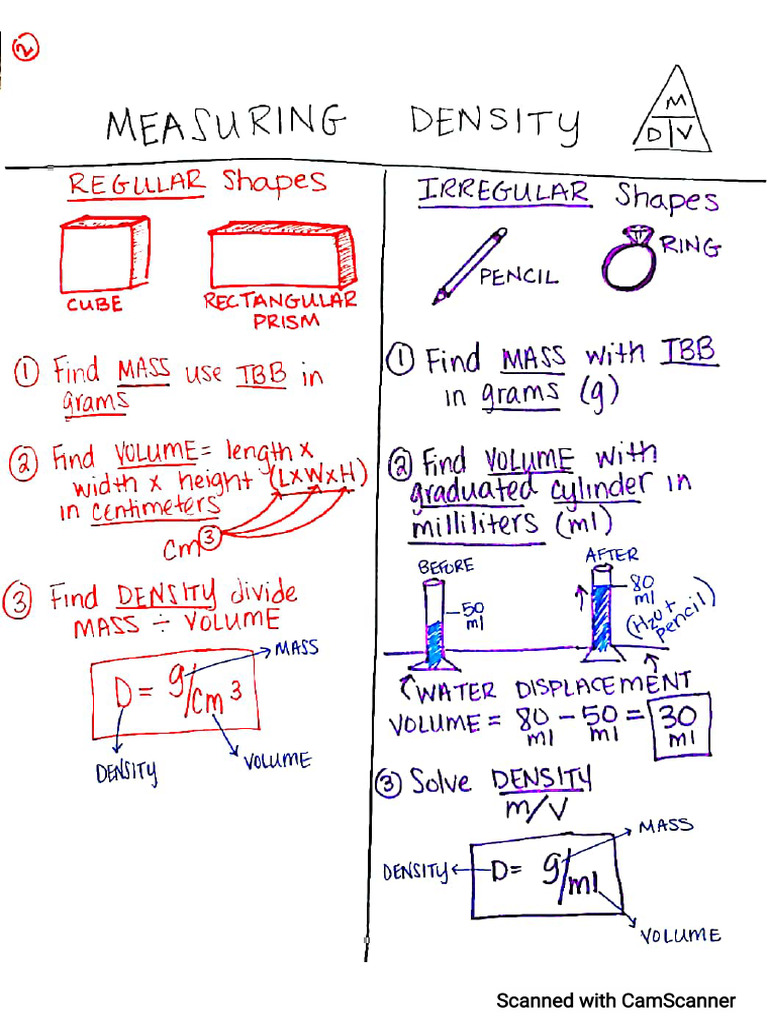 2
MEASURING DENSITY
M
D V
REGULAR Shapes
CUBE
RECTANGULAR
PRISM
① Find MASS use TBB in
grams
② Find VOLUME = length x
width x height (LxWxH)
in centimeters
cm³
③ Find DENSITY divide
MASS ÷ VOLUME
MASS
D = g/cm³
DENSITY
VOLUME
IRREGULAR Shapes
PENCIL
RING
① Find MASS with TBB
in grams (g)
② Find VOLUME with
graduated cylinder in
milliliters (ml)
BEFORE
50
ml
AFTER
80
ml
(H20 +
pencil)
WATER DISPLACEMENT
VOLUME = 80 ml - 50 ml = 30 ml
③ Solve DENSITY
m/V
MASS
DENSITY
D = g/ml
VOLUME
Scanned with CamScanner